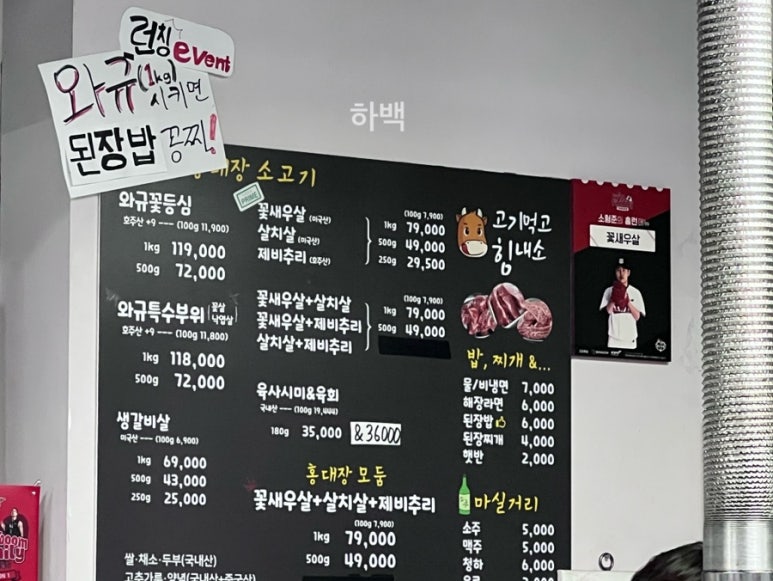 런칭 event
와규(1kg)
시키면
된장밥 공찌!
하백
대장 소고기
PRIME
와규꽃등심
호주산 +9 --- (100g 11,900)
1kg 119,000
500g 72,000
와규특수부위 [꽃살 낙엽살]
호주산 +9 --- (100g 11,800)
1kg 118,000
500g 72,000
생갈비살
미국산 --- (100g 6,900)
1kg 69,000
500g 43,000
250g 25,000
쌀·채소·두부(국내산)
고추가루·양념(국내산+중국산)
꽃새우살 (미국산)
살치살 (미국산)
제비추리 (호주산)
(100g 7,900)
1kg 79,000
500g 49,000
250g 29,500
꽃새우살+살치살
꽃새우살+제비추리
살치살+제비추리
(100g 7,900)
1kg 79,000
500g 49,000
육사시미&육회
국내산 --- (100g 19,444)
180g 35,000 & 36000
홍대장 모둠
꽃새우살+살치살+제비추리
(100g 7,900)
1kg 79,000
500g 49,000
고기먹고
힘내소
밥, 찌개 &...
물/비냉면 7,000
해장라면 6,000
된장밥 6,000
된장찌개 4,000
햇반 2,000
마실거리
소주 5,000
맥주 5,000
청하 6,000
소형준의 홈런메뉴
꽃새우살